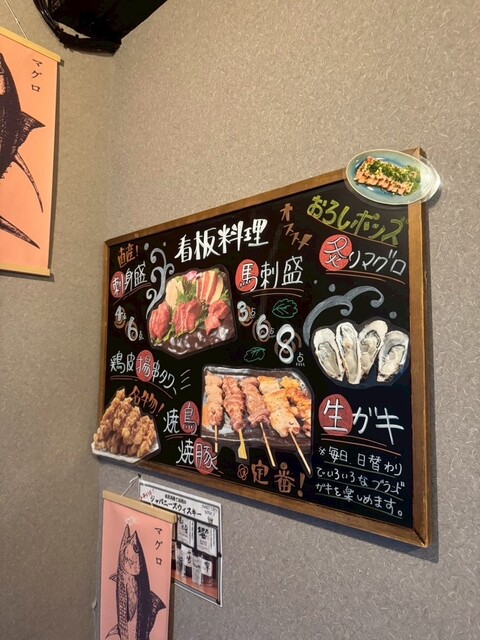 マグロ
看板料理
直送!
刺身盛
6点
馬刺盛
3点
6点
8点
オススメ
おろしポンズ
炙りマグロ
鶏皮揚串タワー
名物!
焼鳥
焼豚
定番!
生ガキ
※毎日、日替わり
でいろいろなブランド
ガキを楽しめます。
ジャパニーズウィスキー
マグロ